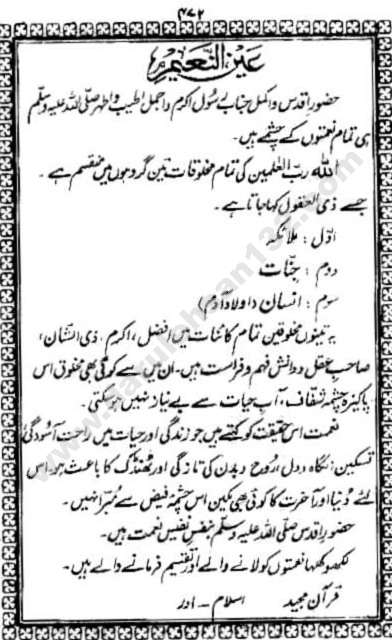 ۴۷۲
عَیْنُ النَّعِیْم
حضورِ اقدس و اکمل جنابِ رسول اکرم و اجمل اطیب و اطہر صلی اللہ علیہ وسلم
ہی تمام نعمتوں کے چشمے ہیں۔
اللہ ربّ العٰلمین کی تمام مخلوقات تین گروہوں میں منقسم ہے۔
جسے ذوی العقول کہا جاتا ہے۔
اوّل : ملائکہ
دوم : جنّات
سوم : انسان (اولادِ آدم)
یہ تینوں مخلوقین تمام کائنات میں افضل، اکرم، ذی الشّان،
صاحبِ عقل و دانش فہم و فراست ہیں۔ ان میں سے کوئی بھی مخلوق اس
پاکیزہ چشمہ شفاف، آبِ حیات سے بے نیاز نہیں ہو سکتی۔
نعمت اس حقیقت کو کہتے ہیں جو زندگی اور حیات میں راحت آسودگی،
تسکین، نگاہ و دل، روح و بدن کی تازگی اور ٹھنڈک کا باعث ہو۔ اس
لئے دُنیا اور آخرت کا کوئی بھی مکین اس چشمہ فیض سے مُبرّا نہیں۔
حضورِ اقدس صلی اللہ علیہ وسلم بنفسِ نفیس نعمت ہیں۔
لکھوکھہا نعمتوں کو لانے والے اور تقسیم فرمانے والے ہیں۔
قرآن مجید اسلام - اور